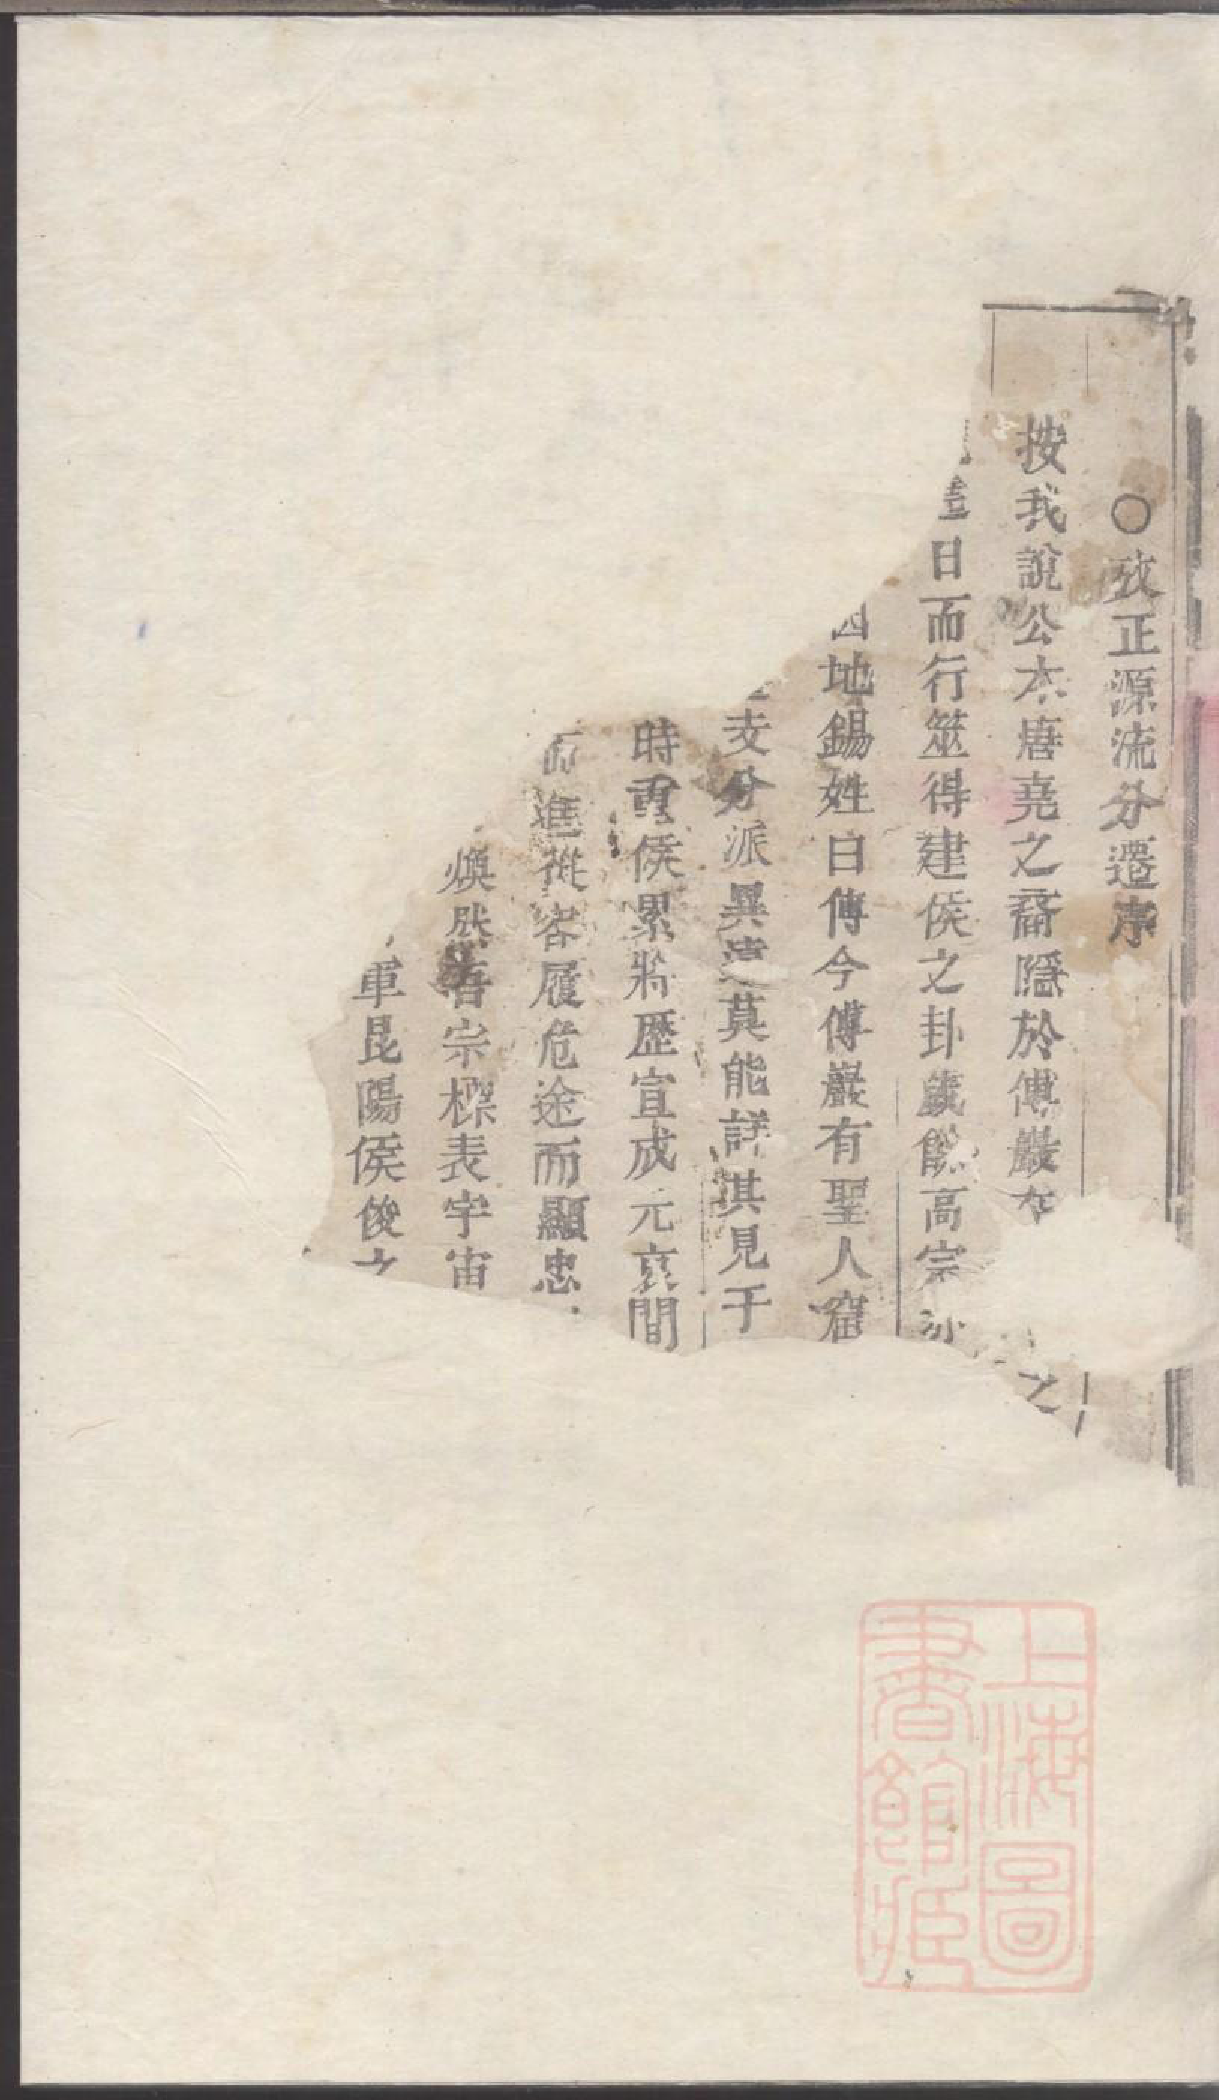 ○攷正源流分遷序
按我說公本唐堯之裔隱於傅巖 之
日而行筮得建侯之卦歲餘高宗
地錫姓曰傅今傅巖有聖人窟
支分派異遠莫能詳其見于
時重侯累將歷宣成元哀間
而進從容履危途而顯忠
煥然吾宗標表宇宙
軍昆陽侯俊之
上海圖
書館藏